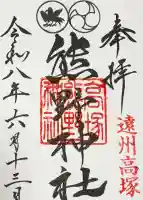 奉拝
熊野神社
高塚
熊野
神社
遠州高塚
令和八年六月十三日